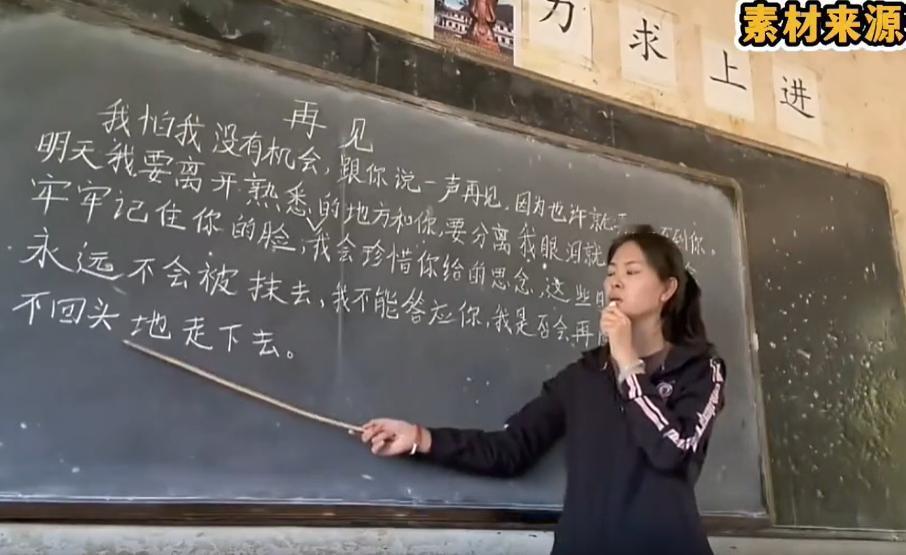 素材来源
力求上进
再见
我怕我没有机会，跟你说一声再见，因为也许就 不到你。
明天我要离开熟悉的地方和你，要分离我眼泪就
牢牢记住你的脸，我会珍惜你给的思念，这些
永远不会被抹去，我不能答应你，我是否会再
不回头地走下去。